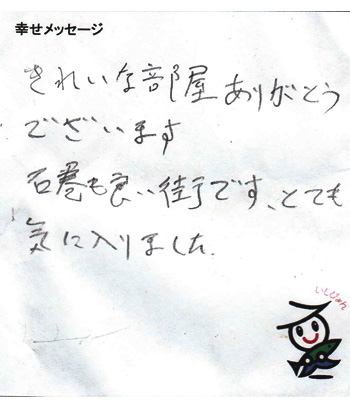 幸せメッセージ
きれいな部屋ありがとう
でざいます
石巻も良い街です、とても
気に入りました.
いしぴょん